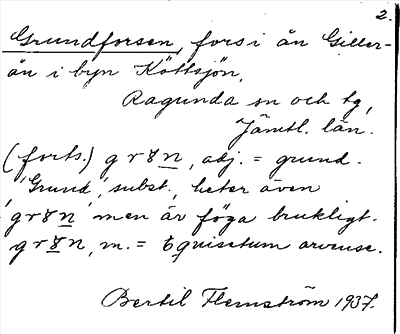 2.
Grundforsen, fors i ån Giller-
ån i byn Köttsjön,
Ragunda sn och tg,
Jämtl. län.
(forts.) g r 8 n, adj. = grund.
'Grund', subst., heter även
'g r 8 n' men är föga brukligt.
g r 8 n, m. = Equisetum arvense.
Bertil Flemström 1937.